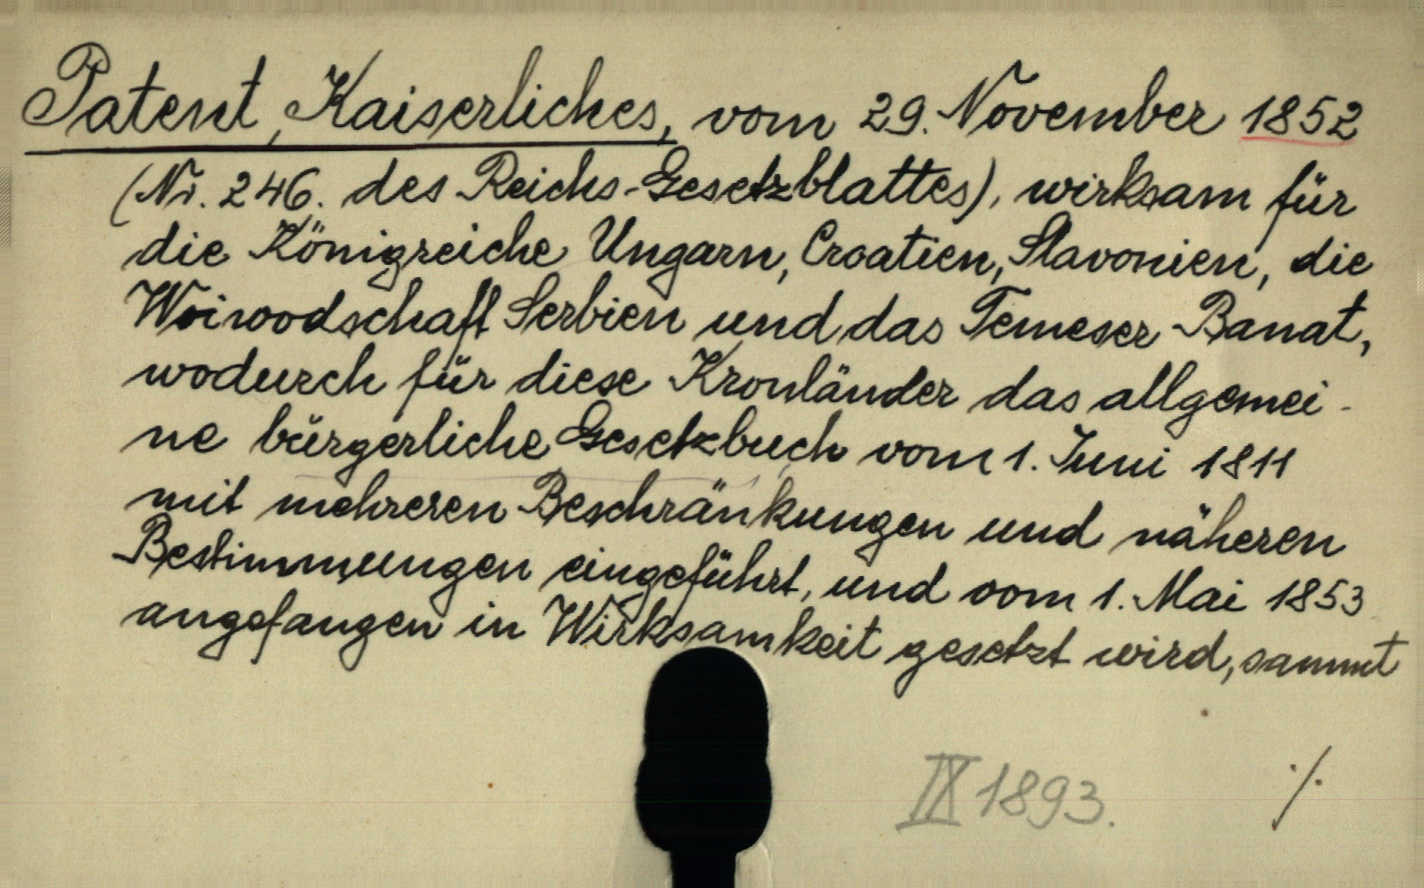 Patent, Kaiserliches, vom 29. November 1852
(Nr. 246. des Reichs-Gesetzblattes), wirksam für
die Königreiche Ungarn, Croatien, Slavonien, die
Woiwodschaft Serbien und das Temeser Banat,
wodurch für diese Kronländer das allgemei-
ne bürgerliche Gesetzbuch vom 1. Juni 1811
mit mehreren Beschränkungen und näheren
Bestimmungen eingeführt, und vom 1. Mai 1853
angefangen in Wirksamkeit gesetzt wird, sammt
IX 1893. ./.